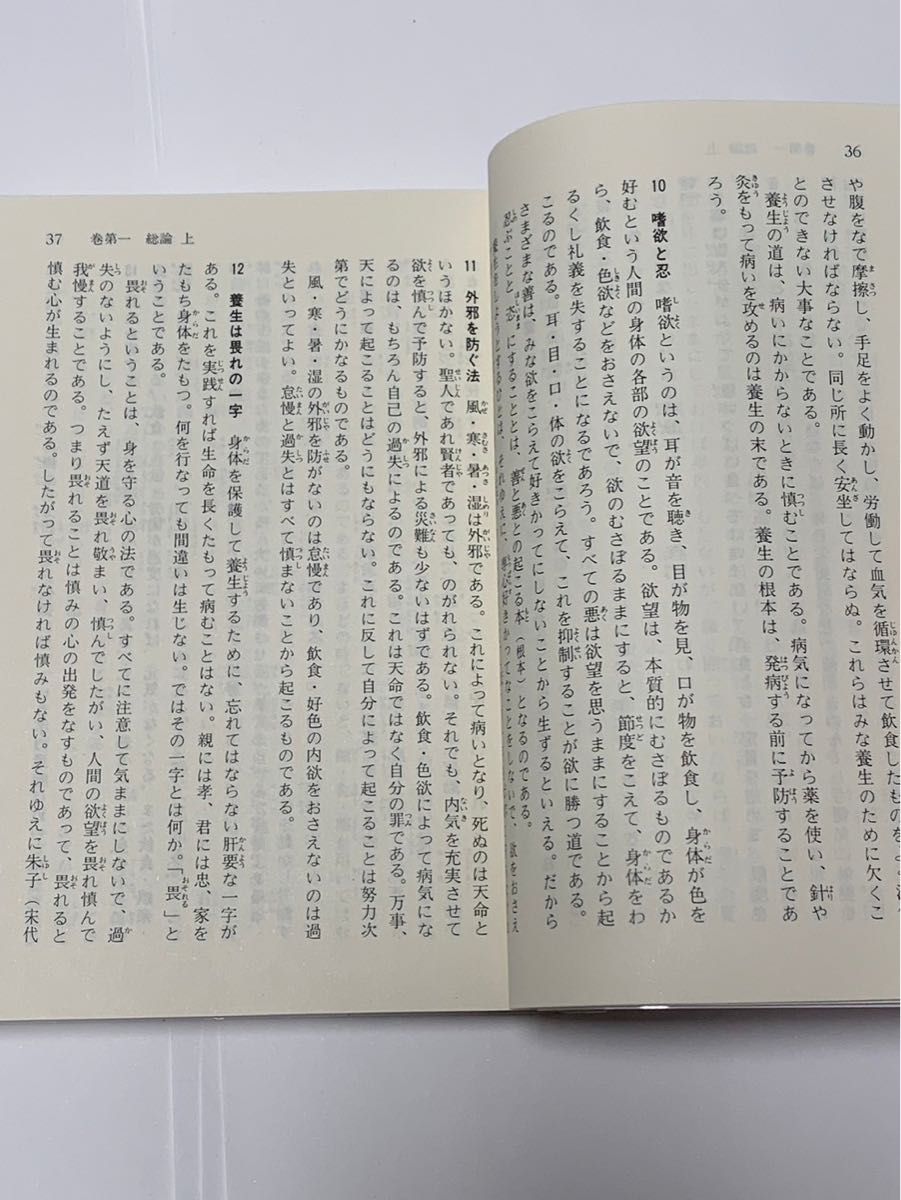 36
や腹をなで摩擦し、手足をよく動かし、労働して血気を循環させて飲食したものを
させなければならない。同じ所に長く安坐してはならぬ。これらはみな養生のために欠くこ
とのできない大事なことである。
養生の道は、病いにかからないときに慎むことである。病気になってから薬を使い、針や
灸をもって病いを攻めるのは養生の末である。養生の根本は、発病する前に予防することであ
ろう。
10 嗜欲と忍 嗜欲というのは、耳が音を聴き、目が物を見、口が物を飲食し、身体が色を
好むという人間の身体の各部の欲望のことである。欲望は、本質的にむさぼるものであるか
ら、飲食・色欲などをおさえないで、欲のむさぼるままにすると、節度をこえて、身体をわ
るくし礼義を失することになるであろう。すべての悪は欲望を思うままにすることから起
こるのである。耳・目・口・体の欲をこらえて、これを抑制することが欲に勝つ道である。
さまざまな善は、みな欲をこらえて好きかってにしないことから生ずるといえる。だから
忍ぶことと、恣にすることは、善と悪との起こる本（根本）となるのである。
37 巻第一 総論 上
11 外邪を防ぐ法 風・寒・暑・湿は外邪である。これによって病いとなり、死ぬのは天命と
いうほかない。聖人であれ賢者であっても、のがれられない。それでも、内気を充実させて
欲を慎んで予防すると、外邪による災難も少ないはずである。飲食・色欲によって病気にな
るのは、もちろん自己の過失によるのである。これは天命ではなく自分の罪である。万事、
天によって起こることはどうにもならない。これに反して自分によって起こることは努力次
第でどうにかなるものである。
風・寒・暑・湿の外邪を防がないのは怠慢であり、飲食・好色の内欲をおさえないのは過
失といってよい。怠慢と過失とはすべて慎まないことから起こるものである。
12 養生は畏れの一字 身体を保護して養生するために、忘れてはならない肝要な一字が
ある。これを実践すれば生命を長くたもって病むことはない。親には孝、君には忠、家を
たもち身体をたもつ。何を行なっても間違いは生じない。ではその一字とは何か。「畏」と
いうことである。
畏れるということは、身を守る心の法である。すべてに注意して気ままにしないで、過
失のないようにし、たえず天道を畏れ敬まい、慎んでしたがい、人間の欲望を畏れ慎んで
我慢することである。つまり畏れることは慎みの心の出発をなすものであって、畏れると
慎む心が生まれるのである。したがって畏れなければ慎みもない。それゆえに朱子（宋代